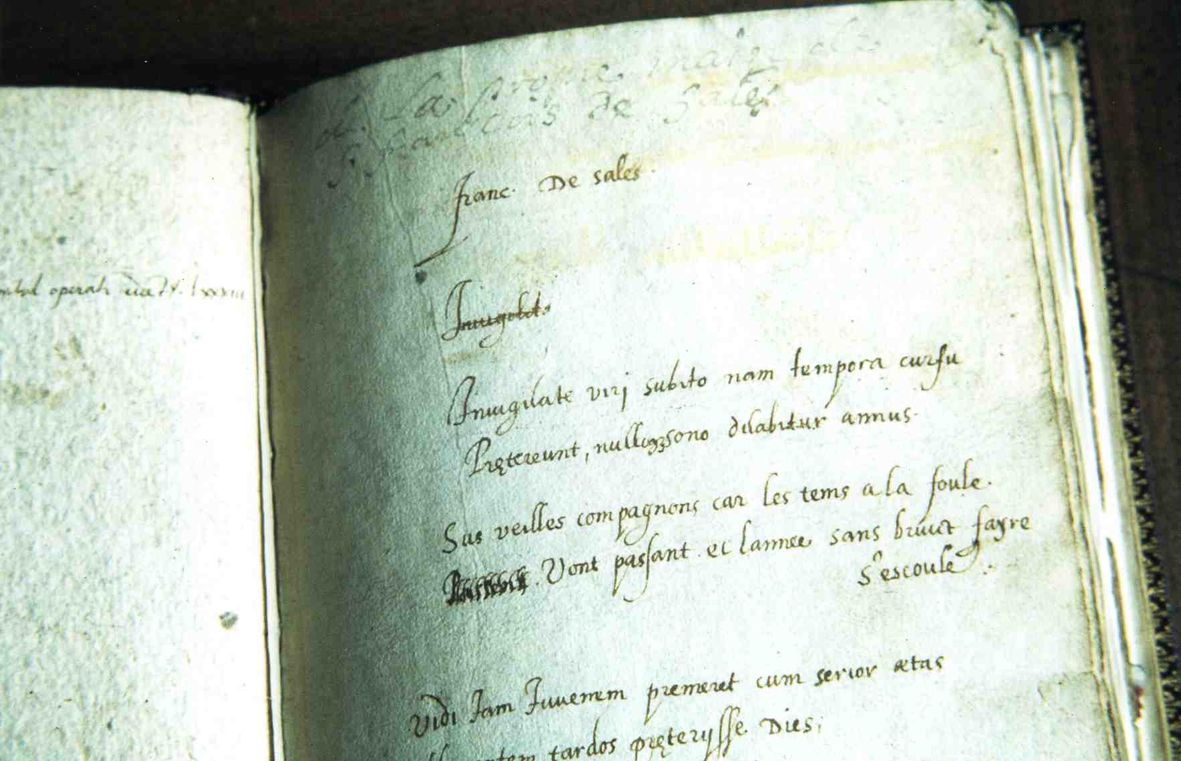 de la propre main de
S. Francois de Sales
franc. De sales.
Inuigilate viri subito nam tempora cursu
Prętereunt, nulloqꝫ sono dilabitur annus.
Sus veilles compagnons car les tems a la foule.
Vont passant et lannee sans bruict fayre
s'escoule.
Vidi Jam Juvenem premeret cum serior ætas
tardos pręterijsse Dies;